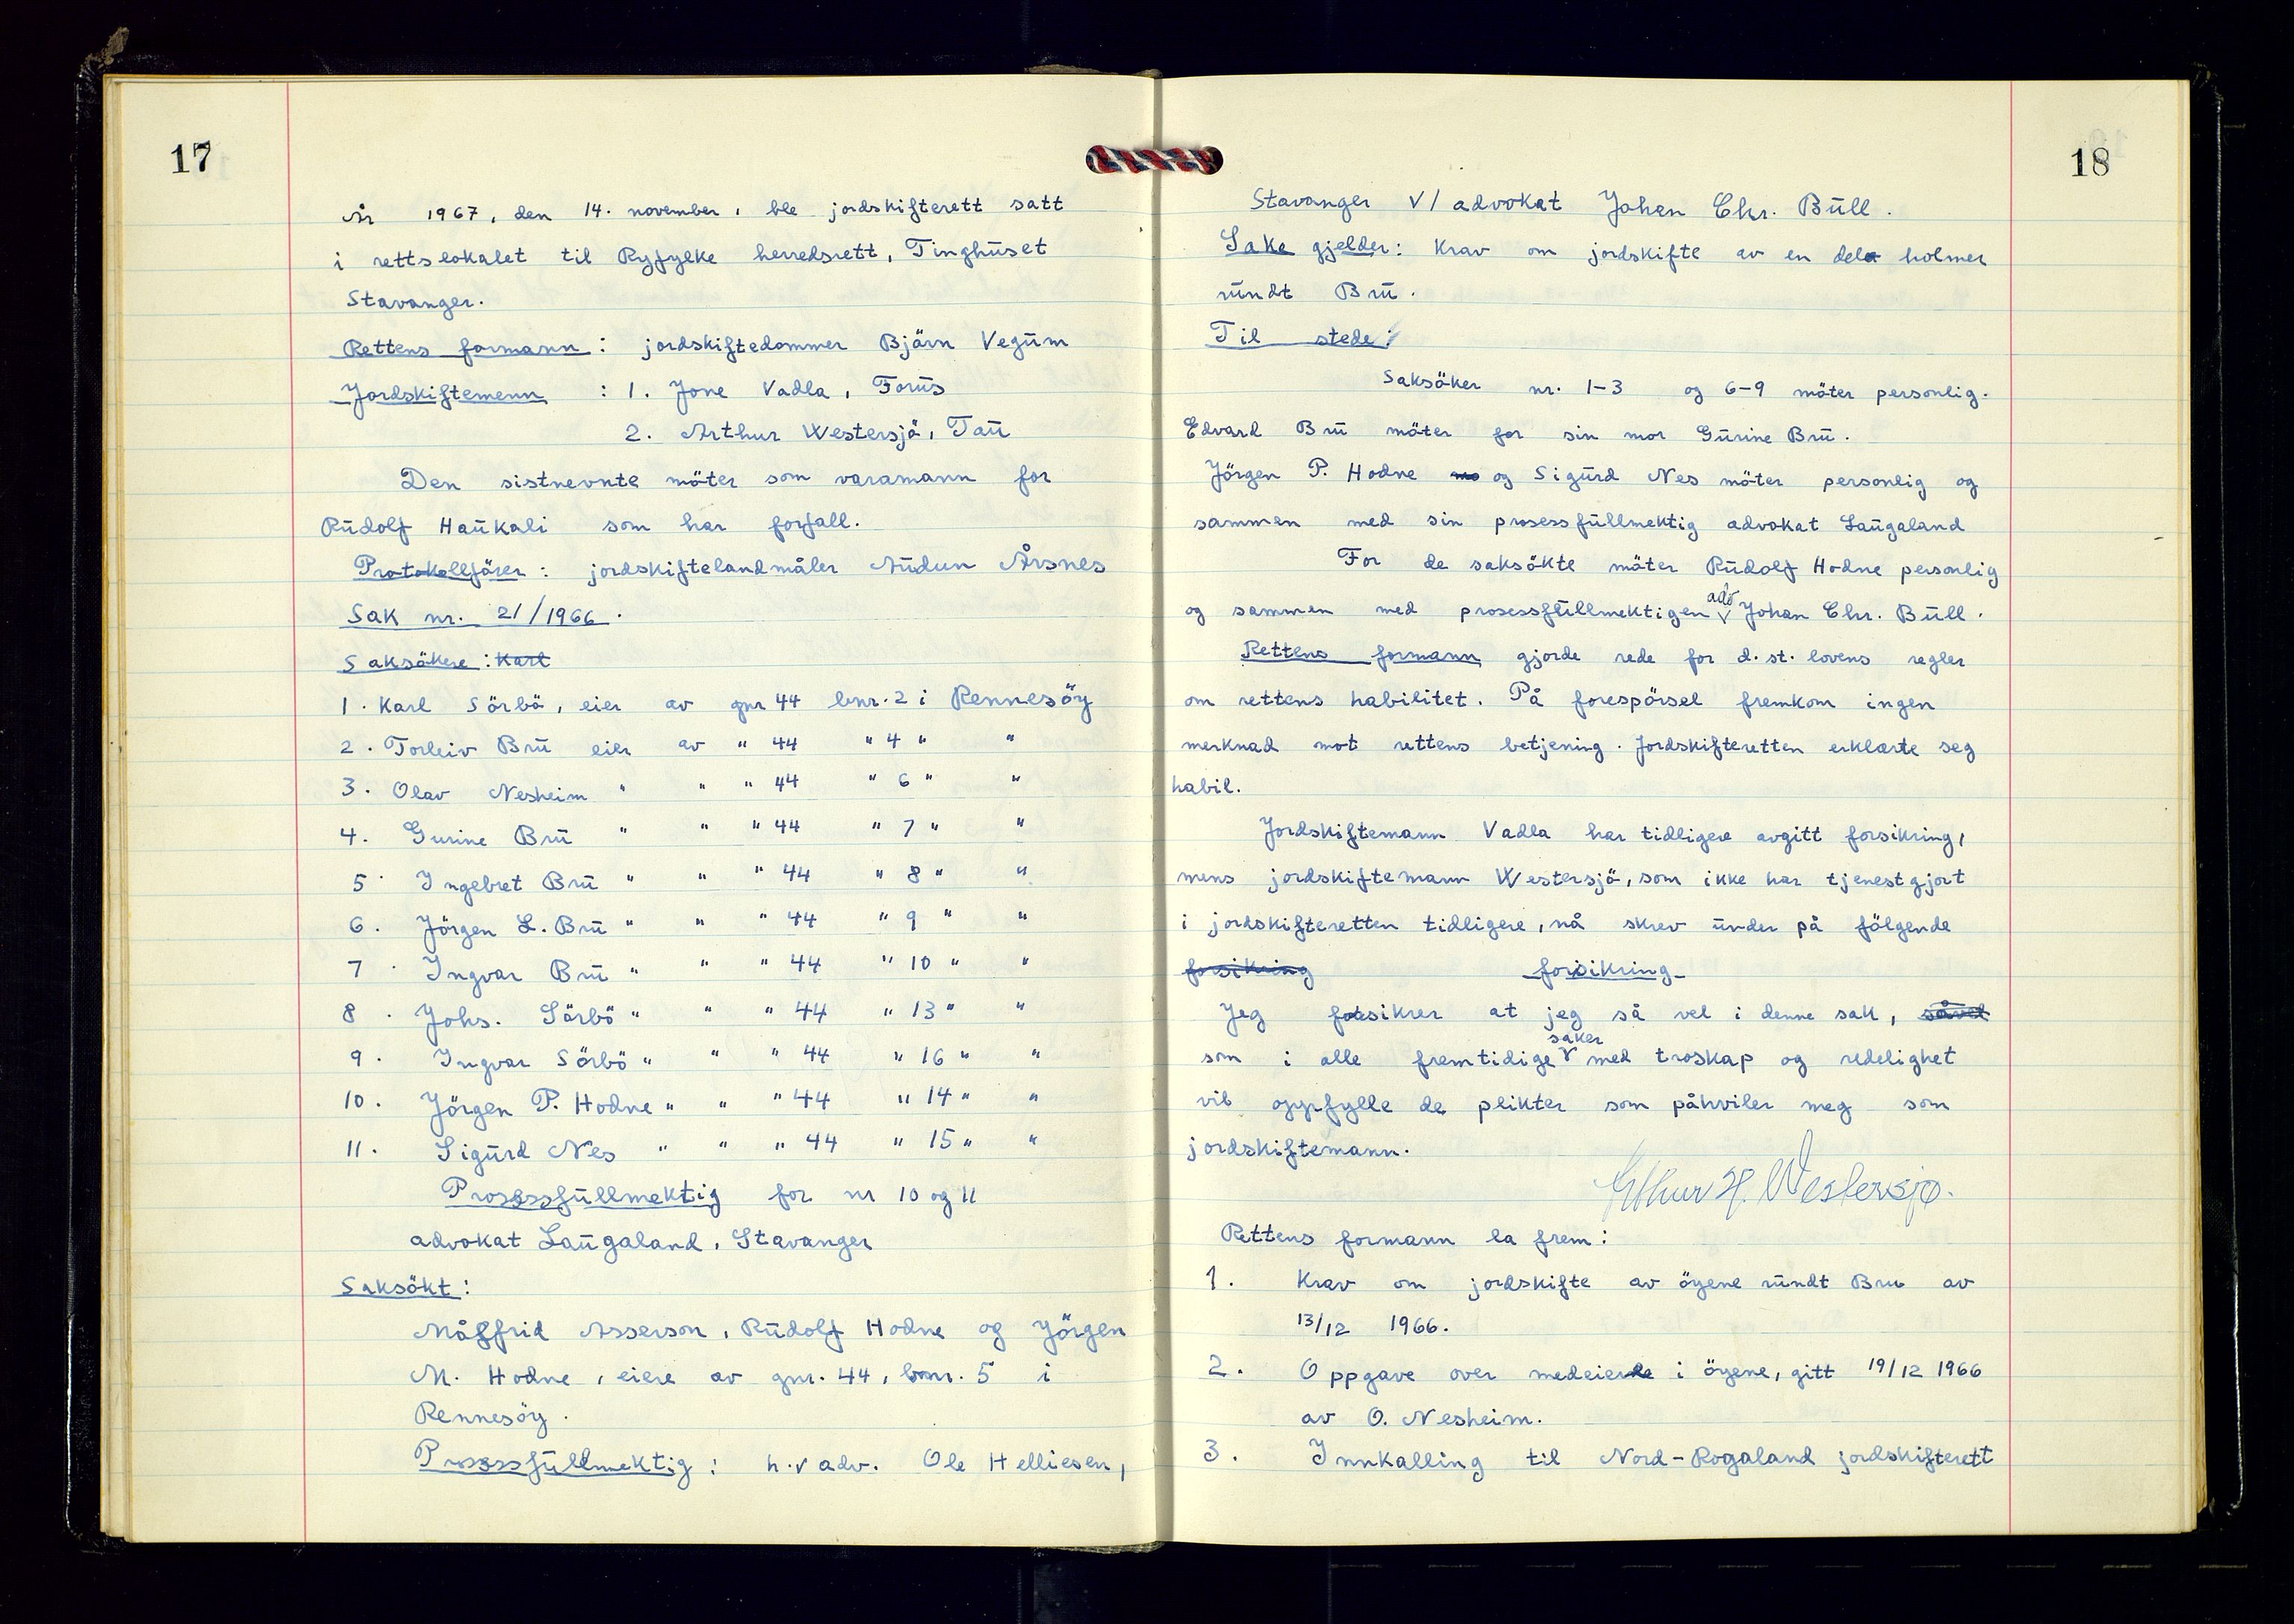 17
År 1967, den 14. november, ble jordskifterett satt
i rettslokalet til Ryfylke herredsrett, Tinghuset
Stavanger.
Rettens formann : jordskiftedommer Björn Vegum
Jordskiftemenn : 1. Jone Vadla, Forus
2. Arthur Westersjö, Tau
Den sistnevnte möter som varamann for
Rudolf Haukali som har forfall.
Protokollförer : jordskiftelandmåler Audun Årsnes
Sak nr. 21/1966.
Saksökere : Karl
1. Karl Sörbö, eier av gnr 44 bnr. 2 i Rennesöy
2. Torleiv Bru eier av " 44 " 4 " "
3. Olav Nesheim " " " 44 " 6 " "
4. Gurine Bru " " " 44 " 7 " "
5. Ingebret Bru " " " 44 " 8 " "
6. Jörgen L. Bru " " " 44 " 9 " "
7. Ingvar Bru " " " 44 " 10 " "
8. Johs. Sörbö " " " 44 " 13 " "
9. Ingvar Sörbö " " " 44 " 16 " "
10. Jörgen P. Hodne " " " 44 " 14 " "
11. Sigurd Nes " " " 44 " 15 " "
Prosessfullmektig for nr 10 og 11
advokat Laugaland, Stavanger
Saksökt:
Målfrid Asserson, Rudolf Hodne og Jörgen
M. Hodne, eiere av gnr. 44, bnr. 5 i
Rennesöy.
Prosessfullmektig : h.r adv. Ole Helliesen,
18
Stavanger v/ advokat Johan Chr. Bull.
Saka gjelder: Krav om jordskifte av en del holmer
rundt Bru.
Til stede:
Saksöker nr. 1-3 og 6-9 möter personlig.
Edvard Bru möter for sin mor Gurine Bru.
Jörgen P. Hodne mo og Sigurd Nes möter personlig og
sammen med sin prosessfullmektig advokat Laugaland
For de saksökte möter Rudolf Hodne personlig
og sammen med prosessfullmektigen adv Johan Chr. Bull.
Rettens formann gjorde rede for d.st. lovens regler
om rettens habilitet. På forespörsel fremkom ingen
merknad mot rettens betjening. Jordskifteretten erklærte seg
habil.
Jordskiftemann Vadla har tidligere avgitt forsikring,
mens jordskiftemann Westersjö, som ikke har tjenestgjort
i jordskifteretten tidligere, nå skrev under på fölgende
forsikring forsikring
Jeg forsikrer at jeg så vel i denne sak, såvel
som i alle fremtidige saker med troskap og redelighet
vil oppfylle de plikter som påhviler meg som
jordskiftemann.
Arthur H. Westersjø.
Rettens formann la frem:
1. Krav om jordskifte av öyene rundt Bru av
13/12 1966.
2. Oppgave over medeiere i öyene, gitt 19/12 1966
av O. Nesheim.
3. Innkalling til Nord-Rogaland jordskifterett